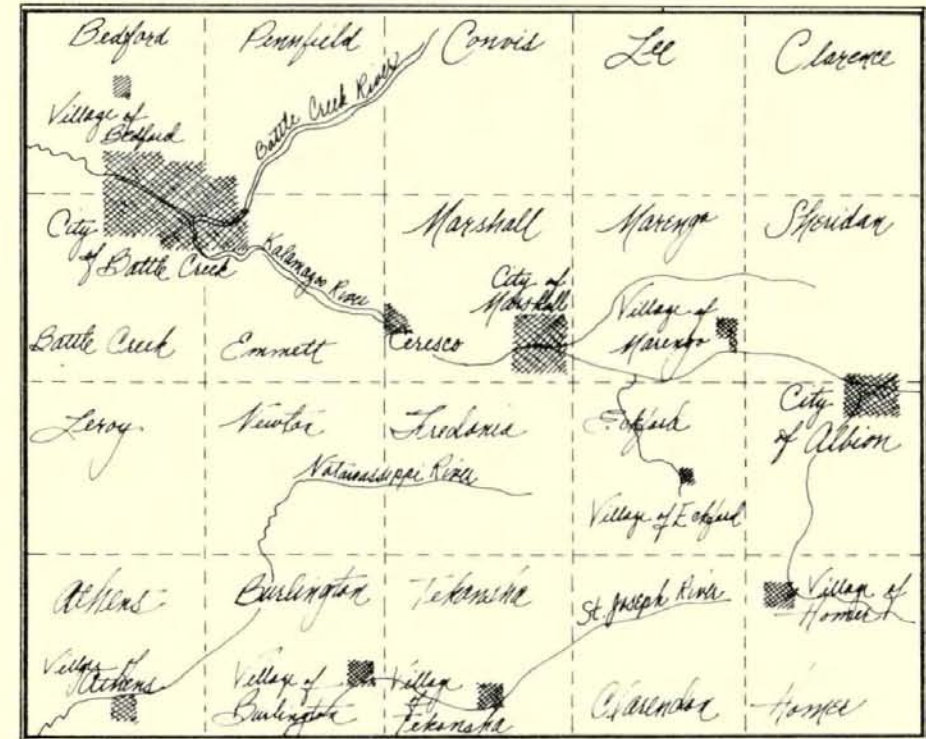 Bedford
Pennfield
Convis
Lee
Clarence
Village of
Bedford
Battle Creek River
City
of Battle Creek
Kalamazoo River
Marshall
Marengo
Sheridan
City of
Marshall
Village of
Marengo
Battle Creek
Emmett
Ceresco
Leroy
Newton
Fredonia
Eckford
City
of Albion
Notawassippi River
Village of Eckford
Athens
Burlington
Tekonsha
St. Joseph River
Village of
Homer
Village of
Athens
Village of
Burlington
Village
of
Tekonsha
Clarendon
Homer